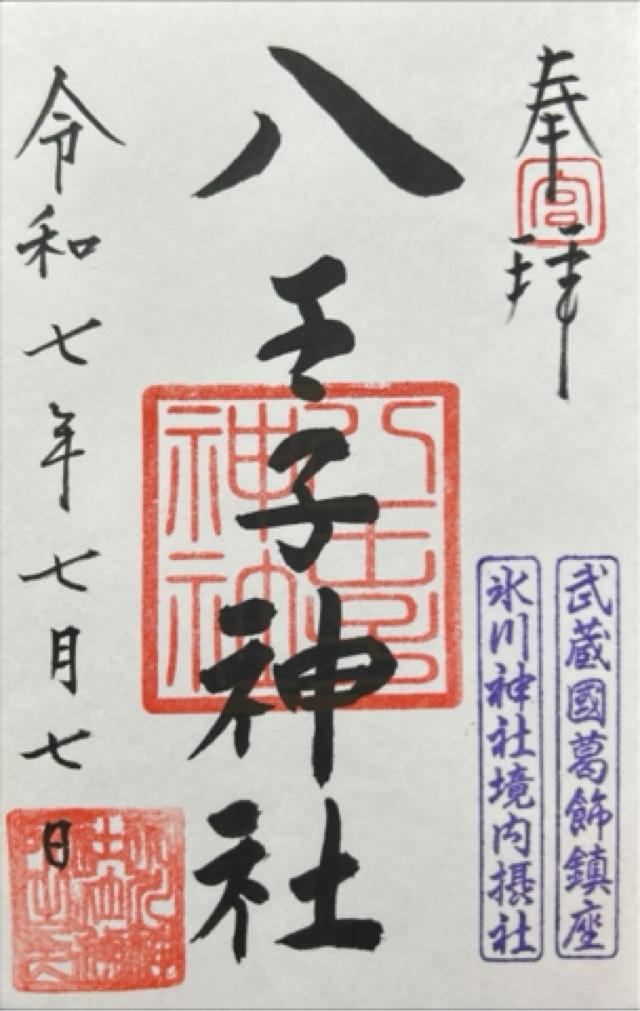 奉拝
宮
武蔵國葛飾鎮座
氷川神社境内摂社
八王子神社
八王子神社
令和七年七月七日